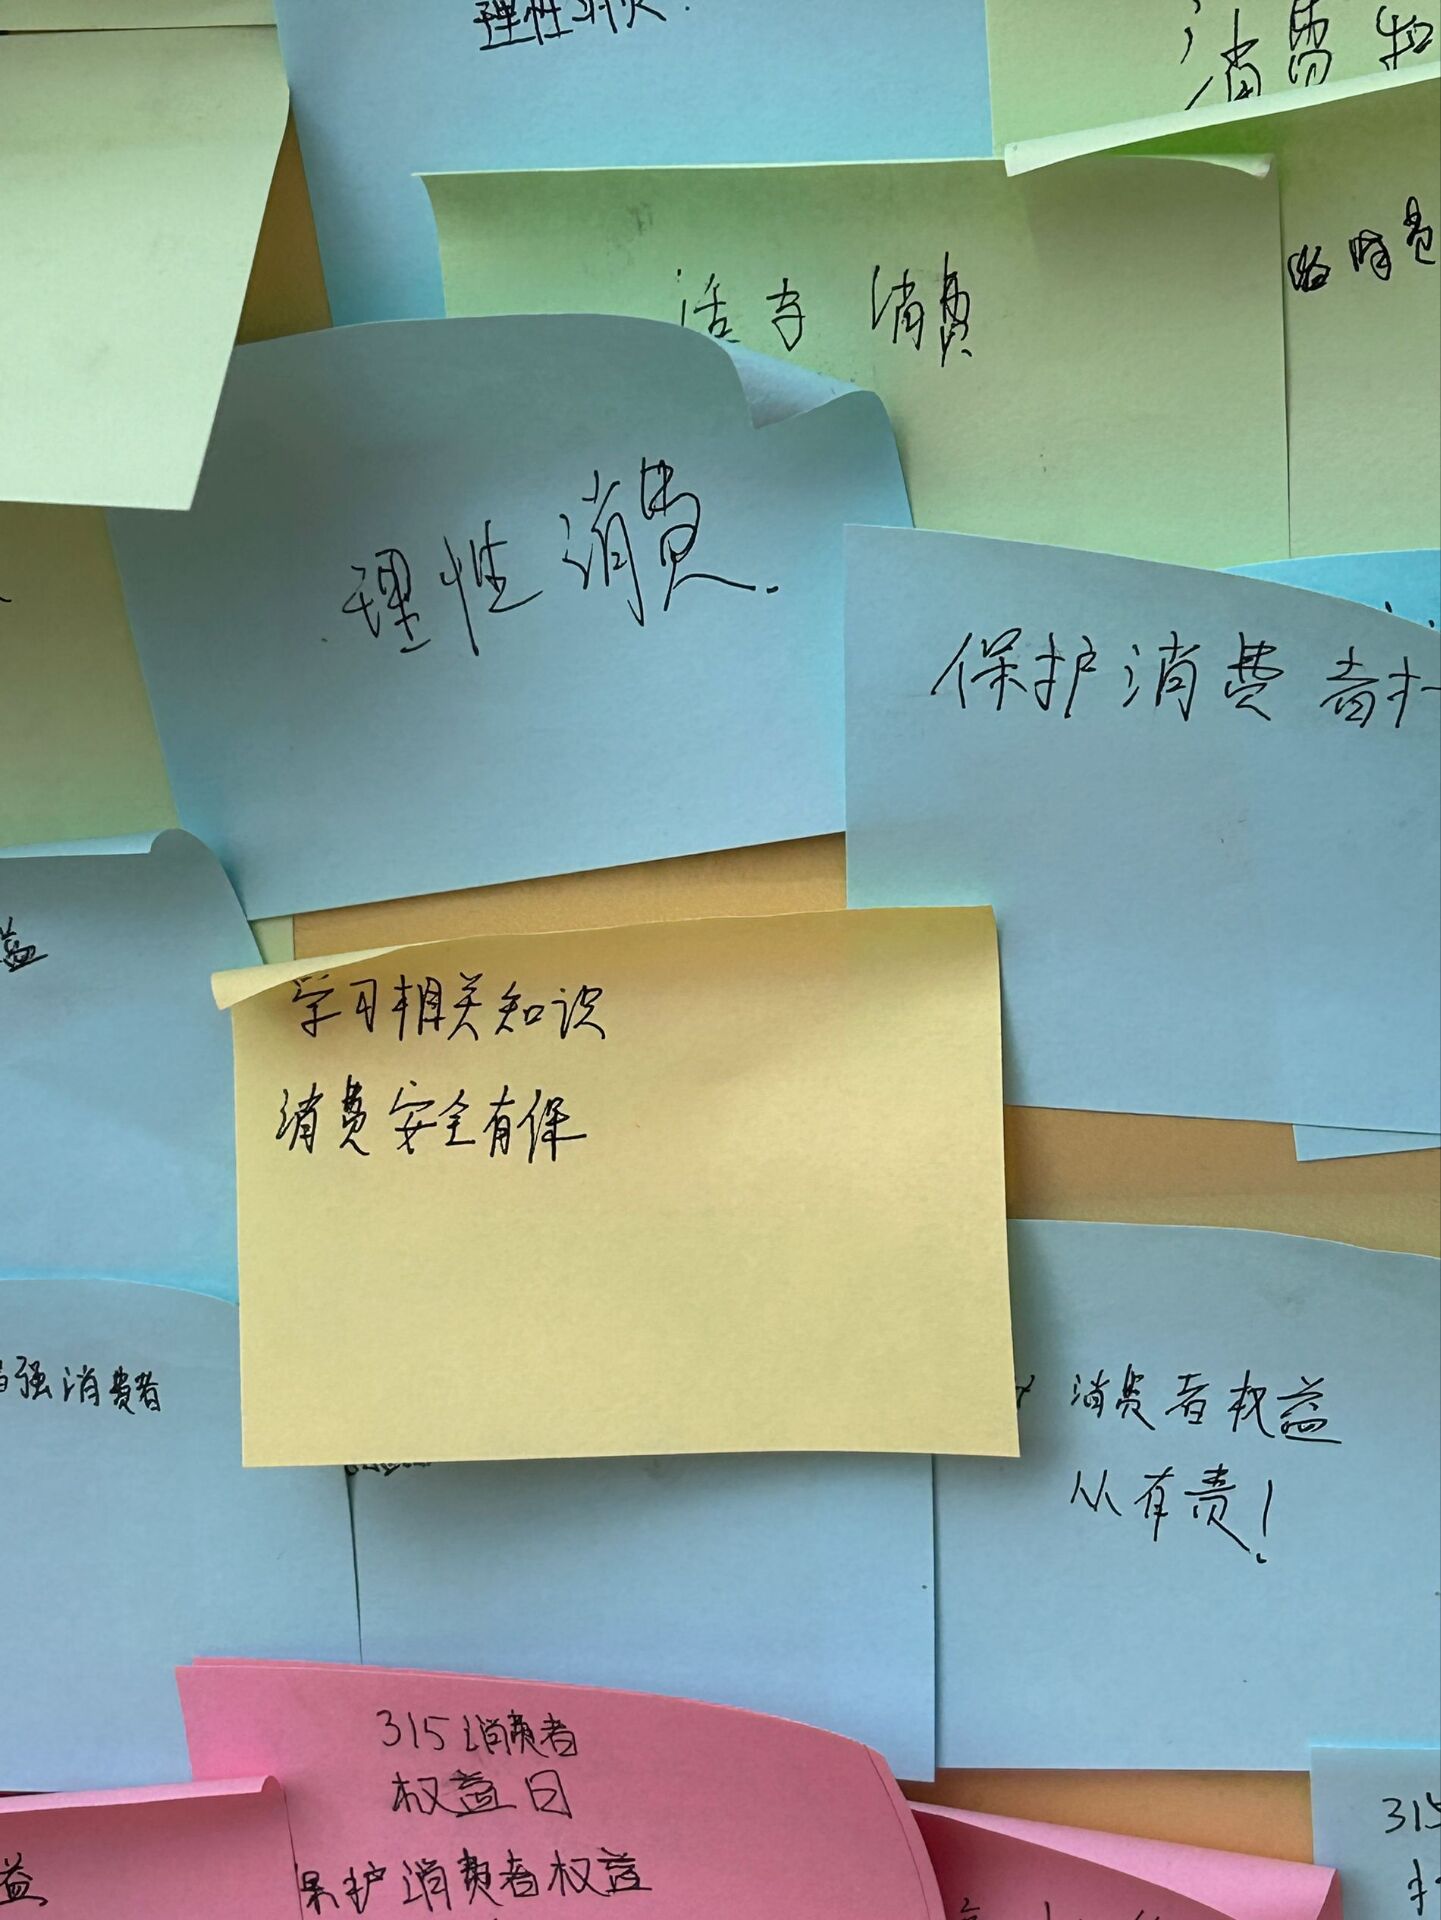 理性消费.
消费
消费
理性消费.
保护消费者
益
学习相关知识
消费安全有保
强消费者
消费者权益
从有责!
315消费者
权益日
保护消费者权益
315
益